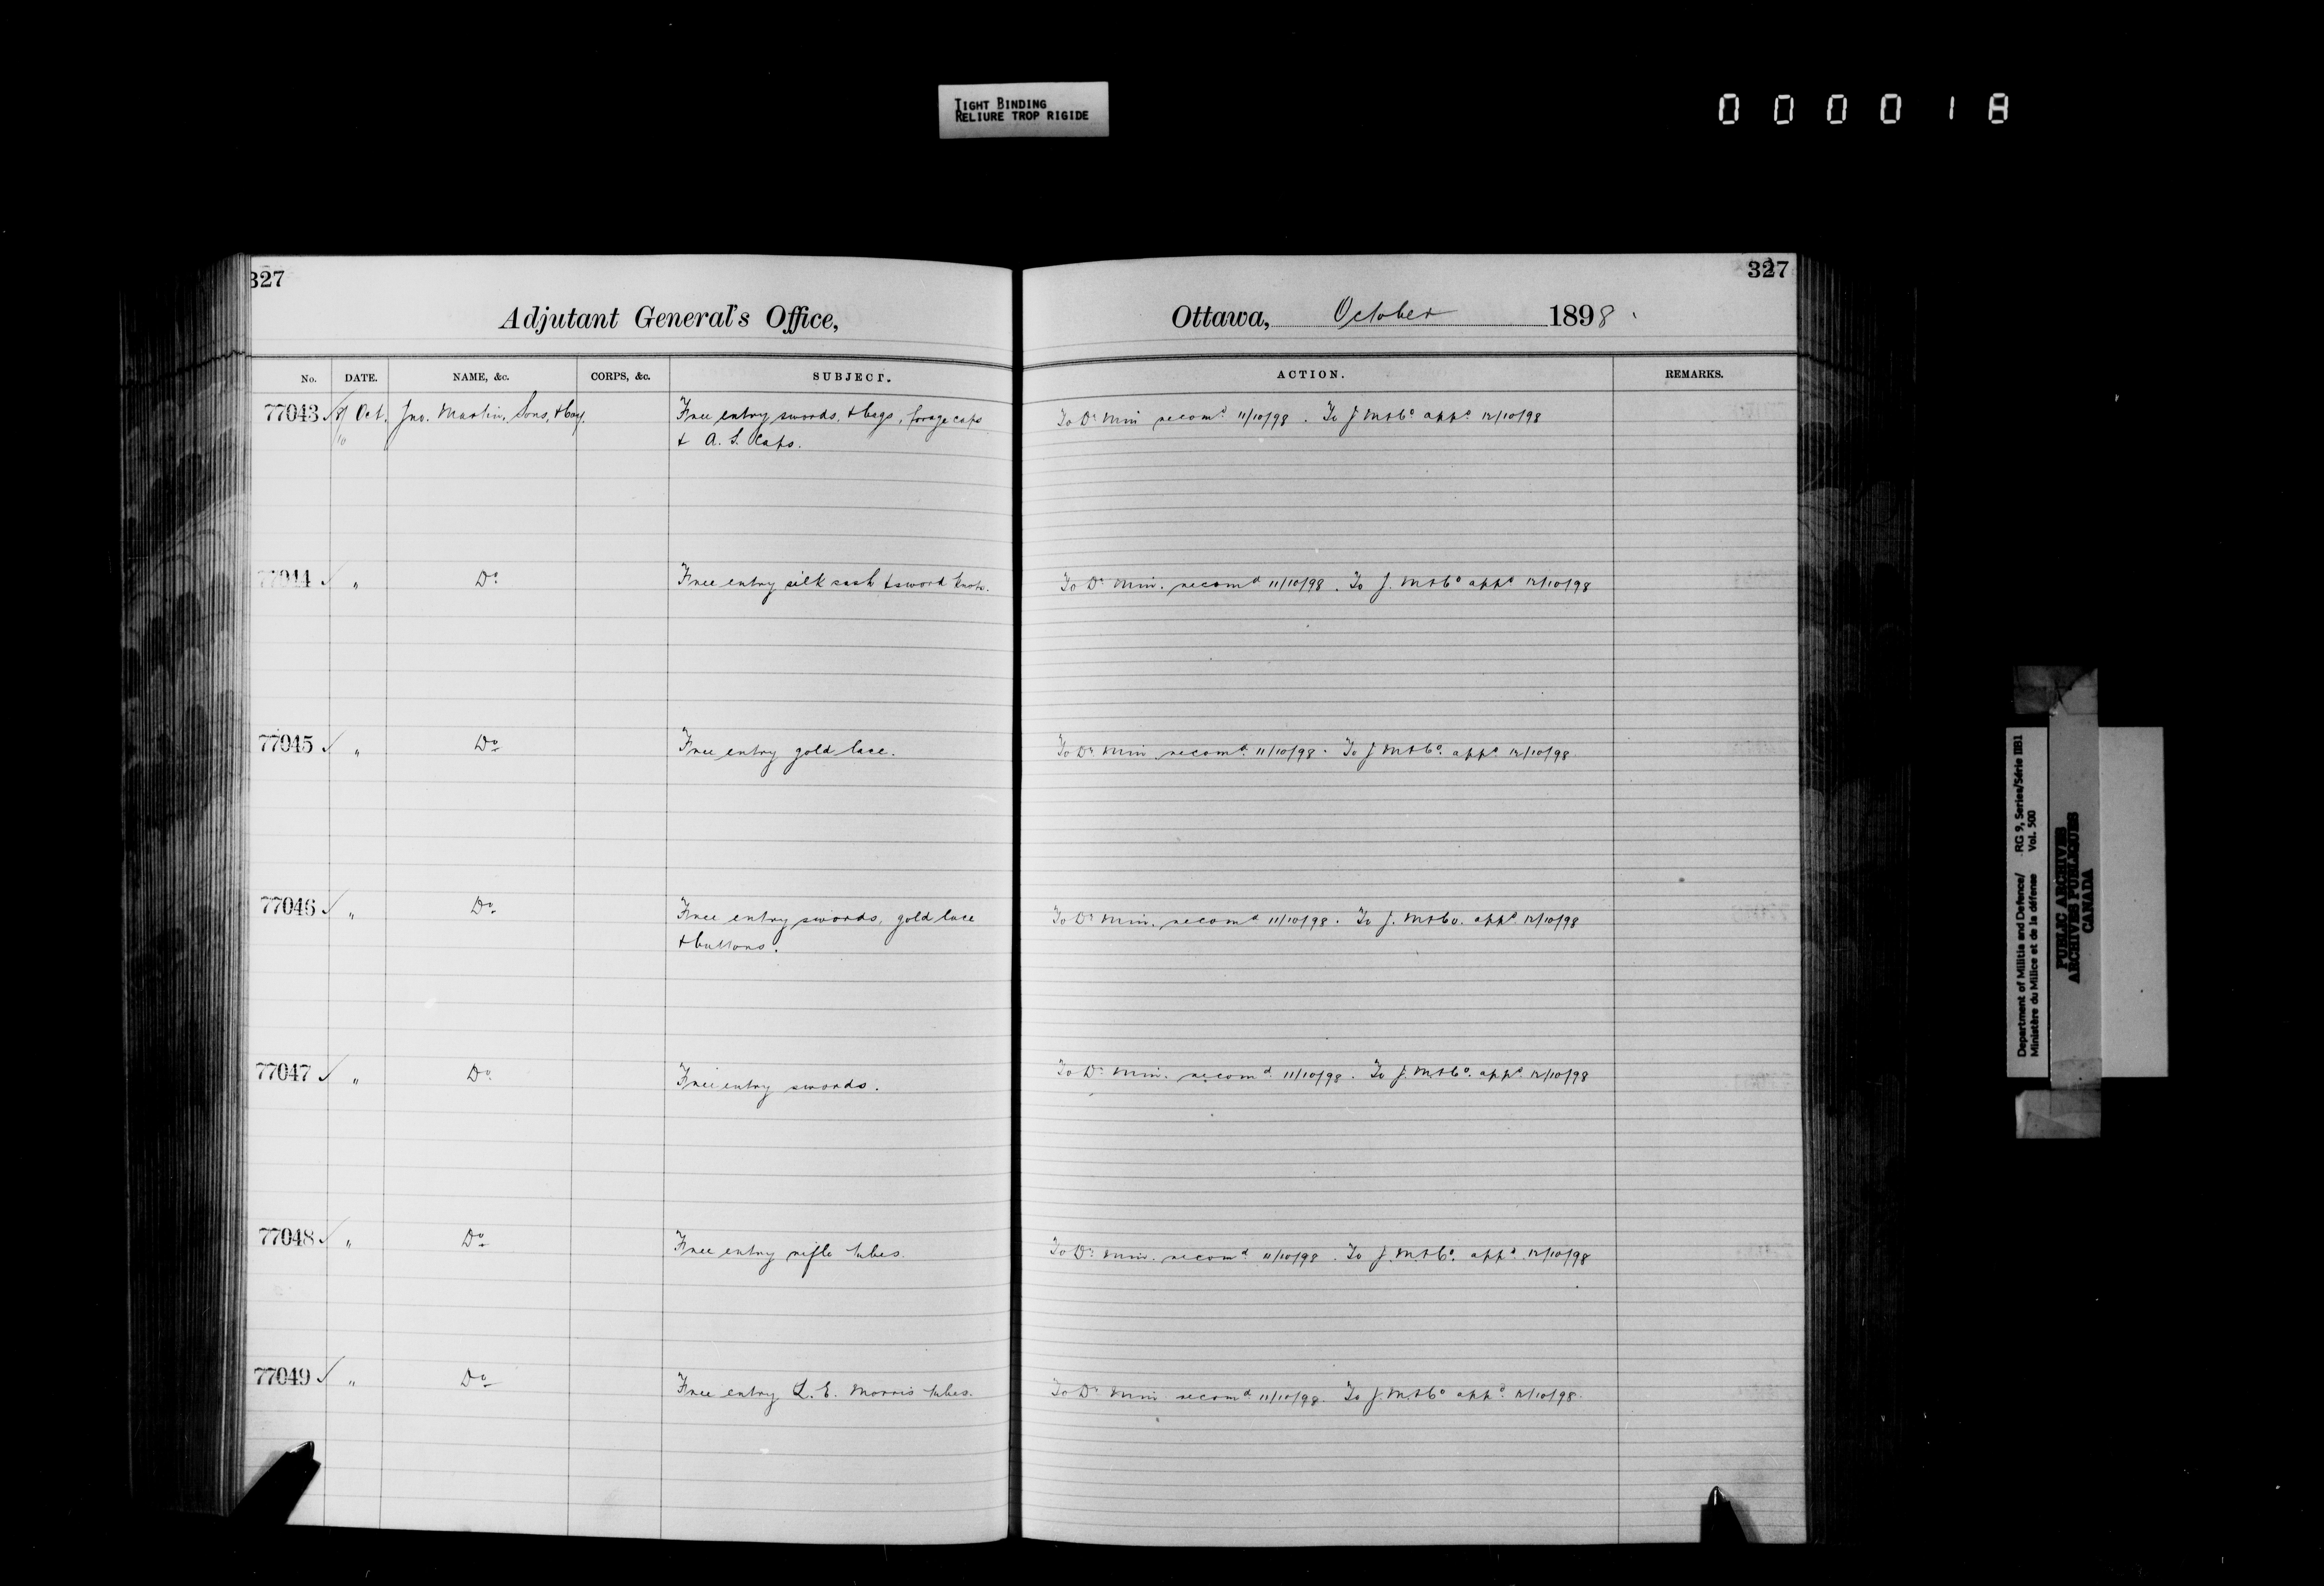 TIGHT BINDING
RELIURE TROP RIGIDE
0 0 0 0 1 8
327
Adjutant General's Office,
No. DATE. NAME, &c. CORPS, &c. SUBJECT.
77043 ✓ 8/10 Oct. Jno. Martin, Sons, & Coy. Free entry swords, & bags, forage caps
& A. S. Caps.
77044 ✓ " Do Free entry silk sash & sword knots.
77045 ✓ " Do Free entry gold lace.
77046 ✓ " Do Free entry swords, gold lace
& buttons.
77047 ✓ " Do Free entry swords.
77048 ✓ " Do Free entry rifle tubes.
77049 ✓ " Do Free entry L. E. Morris tubes.
327
Ottawa, October 1898.
ACTION. REMARKS.
To Dr Min recomd 11/10/98. To J M & Co appd 12/10/98
To Dr Min. recomd 11/10/98. To J. M & Co appd 12/10/98
To Dr Min recomd. 11/10/98. To J M & Co. appd 12/10/98.
To Dr Min. recomd 11/10/98. To J. M & Co. appd 12/10/98
To Dr Min. recomd. 11/10/98. To J. M & Co. appd 12/10/98
To Dr Min. recomd 11/10/98. To J. M. & Co. appd. 12/10/98
To Dr Min recomd 11/10/98. To J. M & Co appd. 12/10/98.
Department of Militia and Defence/ RG 9, Series/Série IIB1
Ministère du Milice et de la défense Vol. 500
PUBLIC ARCHIVES
ARCHIVES PUBLIQUES
CANADA